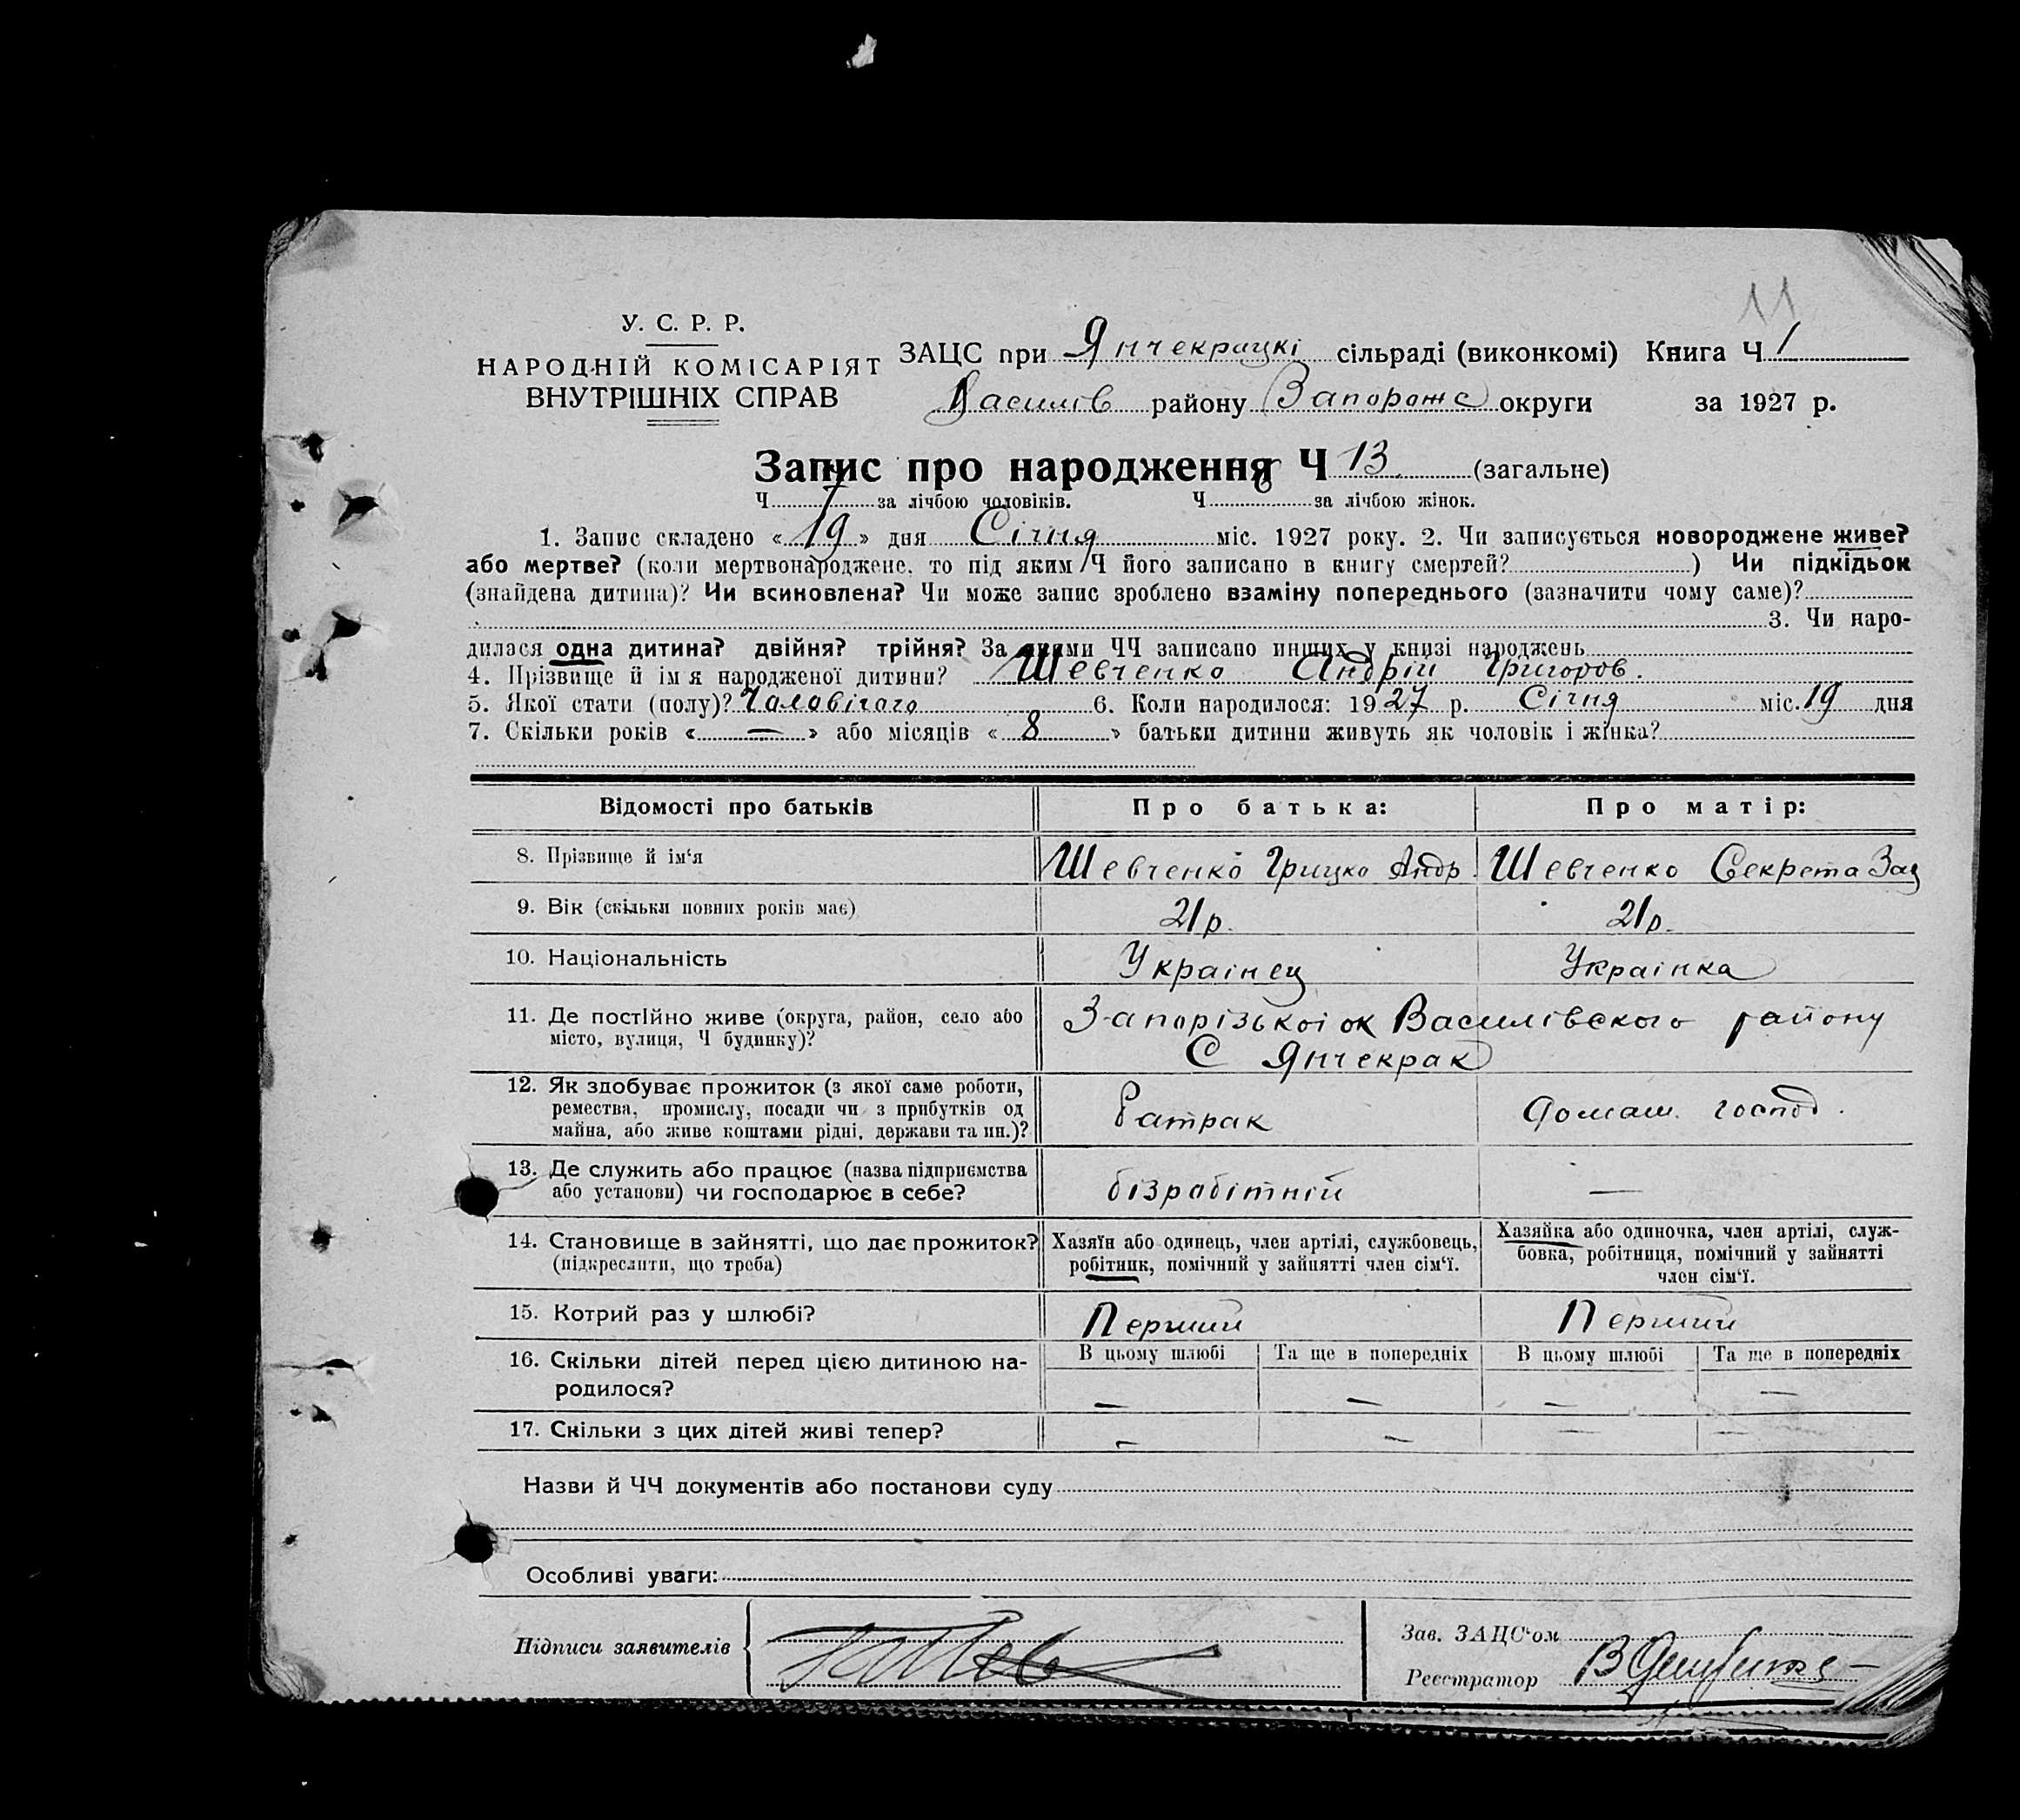 11
У. С. Р. Р.
НАРОДНІЙ КОМІСАРІЯТ
ВНУТРІШНІХ СПРАВ
ЗАЦС при Янчекрацкі сільраді (виконкомі) Книга Ч 1
Василів району Запорожс округи за 1927 р.
Запис про народження Ч 13 (загальне)
Ч 7 за лічбою чоловіків. Ч 6 за лічбою жінок.
1. Запис складено « 19 » дня Січня міс. 1927 року. 2. Чи записується новороджене живе?
або мертве? (коли мертвонароджене, то під яким Ч його записано в книгу смертей? ) Чи підкідьок
(знайдена дитина)? Чи всиновлена? Чи може запис зроблено взаміну попереднього (зазначити чому саме)?
3. Чи наро-
дилася одна дитина? двійня? трійня? За якими ЧЧ записано инших у книзі народжень
4. Прізвище й ім я народженої дитини? Шевченко Андрій Григоров.
5. Якої стати (полу)? Чаловічаго 6. Коли народилося: 1927 р. Січня міс. 19 дня
7. Скільки років « — » або місяців « 8 » батьки дитини живуть як чоловік і жінка?
Відомості про батьків Про батька: Про матір:
8. Прізвище й ім'я Шевченко Грицко Андр. Шевченко Секрета Зах
9. Вік (скільки повних років має) 21р. 21р.
10. Національність Украінец Украінка
11. Де постійно живе (округа, район, село або Запорізькоі ок Василівского району
місто, вулиця, Ч будинку)? С Янчекрак
12. Як здобуває прожиток (з якої саме роботи,
ремества, промислу, посади чи з прибутків од Батрак домаш. господ.
майна, або живе коштами рідні, держави та ин.)?
13. Де служить або працює (назва підприємства
або установи) чи господарює в себе? бізрабітній —
14. Становище в зайнятті, що дає прожиток? Хазяїн або одинець, член артілі, службовець, Хазяйка або одиночка, член артілі, служ-
(підкреслити, що треба) робітник, помічний у зайнятті член сім'ї. бовка, робітниця, помічний у зайнятті
член сім'ї.
15. Котрий раз у шлюбі? Перший Перший
16. Скільки дітей перед цією дитиною на- В цьому шлюбі Та ще в попередніх В цьому шлюбі Та ще в попередніх
родилося? — — — —
17. Скільки з цих дітей живі тепер? — — — —
Назви й ЧЧ документів або постанови суду
Особливі уваги:
Підписи заявителів Зав. ЗАЦС'ом
Реєстратор